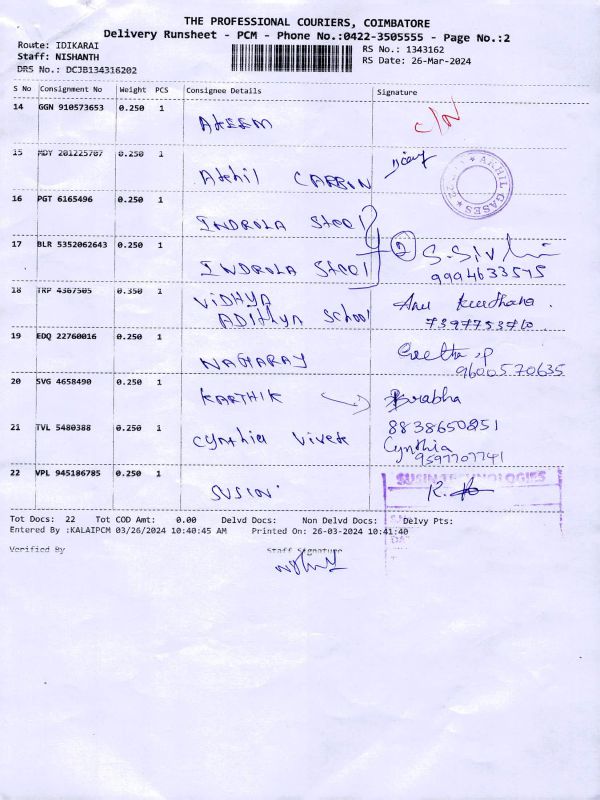 THE PROFESSIONAL COURIERS, COIMBATORE
Delivery Runsheet - PCM - Phone No.:0422-3505555 - Page No.:2
Route: IDIKARAI
RS No.: 1343162
Staff: NISHANTH
RS Date: 26-Mar-2024
DRS No.: DCJB134316202
S No Consignment No Weight PCS Consignee Details Signature
14 GGN 910573653 0.250 1
AKEEM C/N
15 MDY 201225707 0.250 1
AKHIL GASES
Akhil CARBON
16 PGT 6165496 0.250 1
INDROLA Steel
17 BLR 5352062643 0.250 1
2
INDROLA Steel
18 TRP 4367505 0.350 1
VIDHYA
ADITHYA School
19 EDQ 22760016 0.250 1
NAGARAJ Geetha .P
9600570635
20 SVG 4658490 0.250 1
KARTHIK Prabha
8838650851
21 TVL 5480388 0.250 1
Cynthia Vivek Cynthia
9597707741
22 VPL 945186785 0.250 1
SUSIN TECHNOLOGIES
SUSIN
Tot Docs: 22 Tot COD Amt: 0.00 Delvd Docs: Non Delvd Docs: Delvy Pts:
Entered By :KALAIPCM 03/26/2024 10:40:45 AM Printed On: 26-03-2024 10:41:40
Verified By Staff Signature